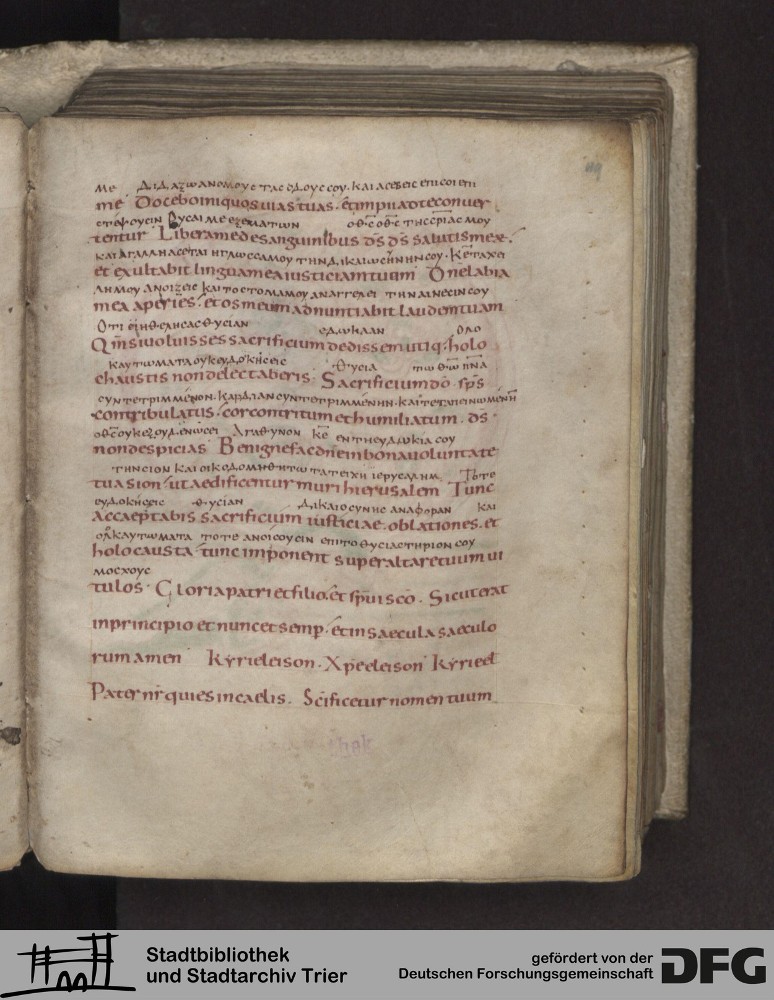 ΜΕ ΔΙΔΑΞΩ ΑΝΟΜΟΥC ΤΑC ΟΔΟΥC CΟΥ · ΚΑΙ ΑCΕΒΕΙC ΕΠΙ CΟΙ ΕΠΙ
me Docebo iniquos uias tuas · et impii ad te conuer
CΤΕΡΨΟΥCΙΝ ΡΥCΑΙ ΜΕ ΕΞ ΕΜΑΤΩΝ Ο ΘC Ο ΘC ΤΗC CΡΙΑC ΜΟΥ
tentur Libera me de sanguinibus ds ds salutis meæ ·
ΚΑΙ ΑΓΑΛΛΗΑCΕΤΑΙ Η ΓΛΩCCΑ ΜΟΥ ΤΗΝ ΔΙΚΑΙΩCΗΝΗΝ CΟΥ · ΚΕ ΤΑ ΧΕΙ
et exultabit lingua mea iusticiam tuam Dne labia
ΛΗ ΜΟΥ ΑΝΟΙΞΕΙC ΚΑΙ ΤΟ CΤΟΜΑ ΜΟΥ ΑΝΑΓΓΕΛΕΙ ΤΗΝ ΑΙΝΕCΙΝ CΟΥ
mea aperies · et os meum adnuntiabit laudem tuam
ΟΤΙ ΕΙ ΗΘΕΛΗCΑC ΘΥCΙΑΝ ΕΔΩΚΑ ΑΝ ΟΛΟ
Qm si uoluisses sacrificium dedissem utiq · holo
ΚΑΥΤΩΜΑΤΑ ΟΥΚ ΕΥΔΟΚΗCΕΙC ΘΥCΙΑ ΤΩ ΘΩ ΠΝΑ
chaustis non delectaberis · Sacrificium do · sps
CΥΝΤΕΤΡΙΜΜΕΝΟΝ · ΚΑΡΔΙΑΝ CΥΝΤΕΤΡΙΜΜΕΝΗΝ · ΚΑΙ ΤΕΤΑΠΕΙΝΩΜΕΝΗΝ
contribulatus · cor contritum et humiliatum · ds ·
Ο ΘC ΟΥΚ ΕΞΟΥΔΕΝΩCΕΙ ΑΓΑΘΥΝΟΝ ΚΕ ΕΝ ΤΗ ΕΥΔΩΚΙΑ CΟΥ
non despicias Benigne fac dne in bona uoluntate
ΤΗΝ CΙΟΝ ΚΑΙ ΟΙΚΟΔΟΜΗΘΗΤΩ ΤΑ ΤΕΙΧΗ ΙΕΡΥCΑΛΗΜ ΤΟΤΕ
tua sion · ut aedificentur muri hierusalem Tunc
ΕΥΔΟΚΗCΕΙC ΘΥCΙΑΝ ΔΙΚΑΙΟCΥΝΗC ΑΝΑΦΟΡΑΝ ΚΑΙ
accaeptabis sacrificium iusticiae · oblationes · et
ΟΛΚΑΥΤΩΜΑΤΑ ΤΟΤΕ ΑΝΟΙCΟΥCΙΝ ΕΠΙ ΤΟ ΘΥCΙΑCΤΗΡΙΟΝ CΟΥ
holocausta · tunc imponent super altare tuum ui
ΜΟCΧΟΥC
tulos · Gloria patri et filio · et spui sco · Sicut erat
in principio et nunc et semp · et in saecula saeculo
rum amen Kyrieleison · Xpeeleison Kyrieel
Pater nr qui es in caelis · Scificetur nomen tuum
Stadtbibliothek
und Stadtarchiv Trier
gefördert von der
Deutschen Forschungsgemeinschaft
DFG